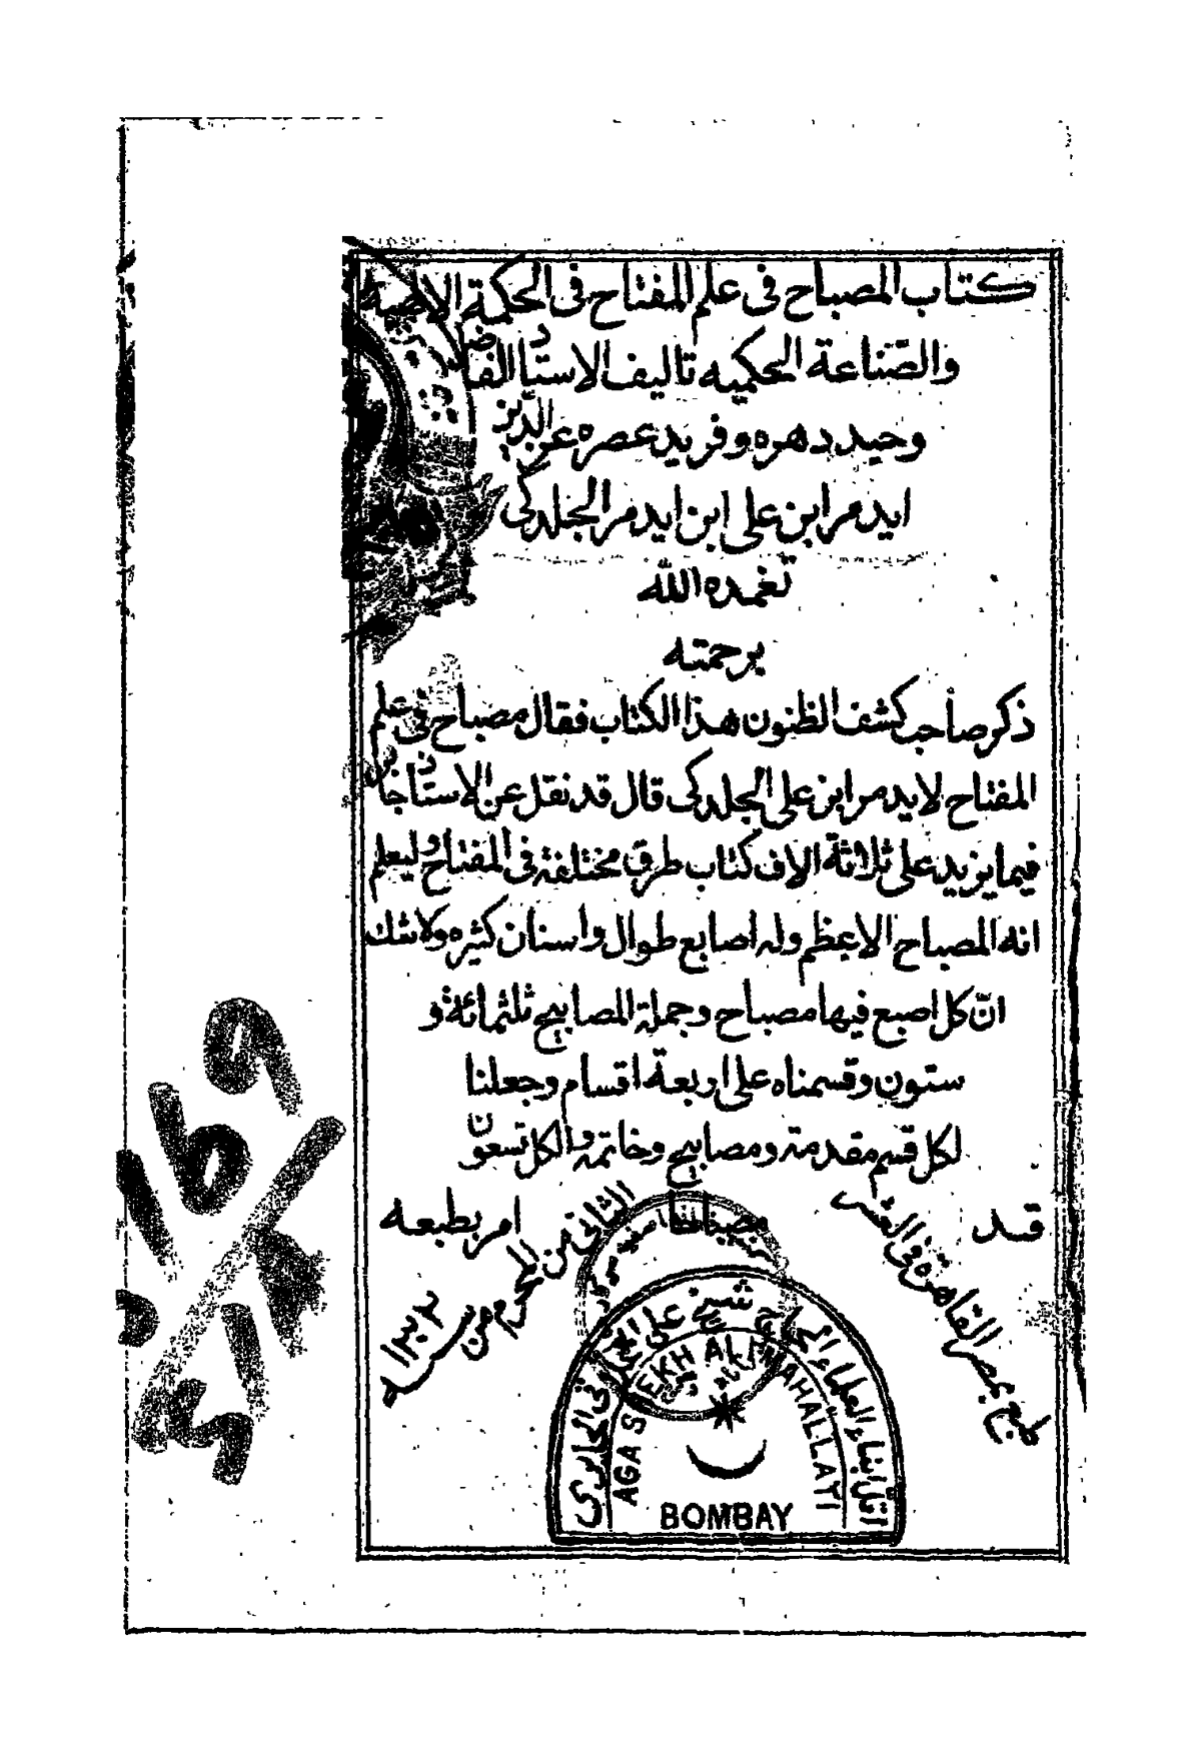 كتاب المصباح فى علم المفتاح فى الحكمة الالهية
والصّناعة الحكميه تاليف الاستاد الفاضل
وحيد دهره وفريد عصره عز الدّين
ايدمر ابن على ابن ايدمر الجلدكى
تغمده الله
برحمته
ذكر صاحب كشف الظنون هذا الكتاب فقال مصباح فى علم
المفتاح لايدمر ابن على الجلدكى قال قد نقل عن الاستاذ جابر
فيما يزيد على ثلاثة الاف كتاب طرق مختلفة فى المفتاح وليعلم
انه المصباح الاعظم وله اصابع طوال واسنان كثيره ولا شك
انّ كل اصبع فيها مصباح وجملة المصابيح ثلثمائة و
ستون وقسمناه على اربعة اقسام وجعلنا
لكل قسم مقدمة ومصابيح وخاتمة والكل تسعون
قد
امر بطبعه
طبع بمصر القاهرة فى العشر
الثانى من المحرم من سـ ١٣٠٢ ـنه
اقل ابناء العلماء الحاج شيخ على المحلاتى الحايرى
AGA SHEKH ALI MAHALLATI
BOMBAY